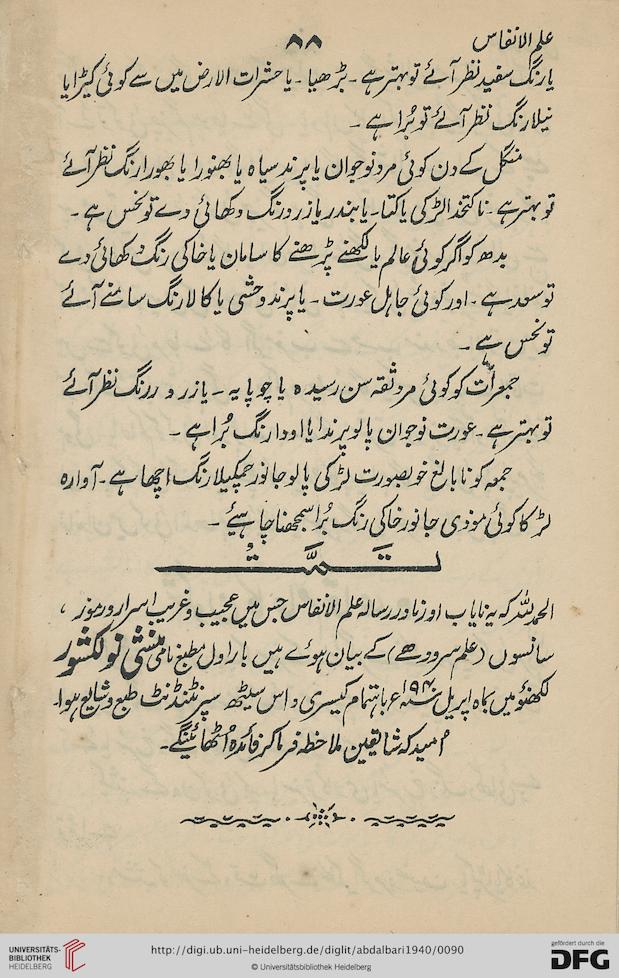 علم الانفاس
۸۸
یا رنگ سفید نظر آئے تو بہتر ہے ۔ بڑھیا ۔ یا حشرات الارض میں سے کوئی کیڑا یا
نیلا رنگ نظر آئے تو بُرا ہے ۔
منگل کے دن کوئی مرد نوجوان یا پرند سیاہ یا بھنورا یا بھورا رنگ نظر آئے
تو بہتر ہے ۔ ناکتخدا لڑکی یا کتا ۔ یا بندر یا زرد رنگ دکھائی دے تو نحس ہے ۔
بدھ کو اگر کوئی عالم یا لکھنے پڑھنے کا سامان یا خاکی رنگ دکھائی دے
تو سعد ہے ۔ اور کوئی جاہل عورت ۔ یا پرند وحشی یا کالا رنگ سامنے آئے
تو نحس ہے ۔
جمعرات کو کوئی مرد ثقہ سن رسیدہ یا چوپایہ ۔ یا زرد رنگ نظر آئے
تو بہتر ہے ۔ عورت نوجوان پالو پرند یا اودا رنگ بُرا ہے ۔
جمعہ کو نابالغ خوبصورت لڑکی پالو جانور چمکیلا رنگ اچھا ہے ۔ آوارہ
لڑکا کوئی موذی جانور خاکی رنگ بُرا سمجھنا چاہیئے ۔
تمّت
الحمد للہ کہ یہ نایاب اور نادر رسالہ علم الانفاس جس میں عجیب و غریب اسرار و رموز ،
سانسوں (علم سرودھے) کے بیان ہوئے ہیں بار اول مطبع نامی منشی نولکشور
لکھنؤ میں بماہ اپریل ۱۹۴۰ء باہتمام کیسری داس سیٹھ سپرنٹنڈنٹ طبع و شایع ہوا۔
اُمید کہ شایقین ملاحظہ فرما کر فائدہ اُٹھائینگے ۔
UNIVERSITÄTS-
BIBLIOTHEK
HEIDELBERG
http://digi.ub.uni-heidelberg.de/diglit/abdalbari1940/0090
© Universitätsbibliothek Heidelberg
gefördert durch die
DFG